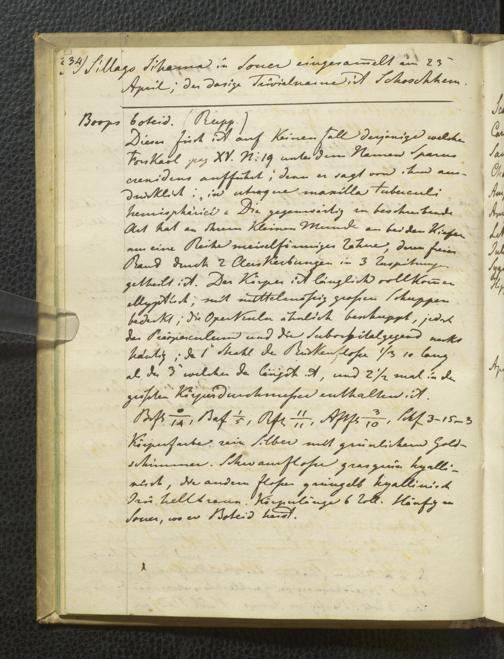 234) Sillago Sihama in Souer eingesammelt am 25
April; der dasige Trivialname ist Schoschhem.
Boops boteid. (Rupp.)
Dieser Fisch ist auf keinen Fall derjenige welchen
Forskaol pag XV. N: 19 unter dem Namen Sparus
crenidens aufführt; denn er sagt von ihm aus-
drücklich: „in utraque maxilla tuberculi
hemisphärici“ Die gegenwärtig zu beschreibende
Art hat an ihrem kleinen Munde an beiden Kiefern
nur eine Reihe meiselförmiger Zähne, deren freier
Rand durch 2 Einkerbungen in 3 Zuspitzungen
getheilt ist. Der Körper ist länglich vollkommen
ellyptisch; mit mittelmäsig grosen Schuppen
bedeckt; die Opercula ähnlich beschuppt, jedoch
das Präoperculum und die Suborbitalgegend nackt
häutig; der 1' Strahl der Rückenflosse 1/3 so lang
als der 3' welcher der längste ist, und 2 1/2 mal in der
grösten Körperdurchmesser enthalten ist.
Brfl /14, Baf 1/5, Rfl 11/11, Affl 3/10, Schf 3-15-3
Körperfarbe rein Silber mit grünlichem Gold-
schimmer. Schwanzflosse grasgrün hyalli-
nisch, die andern Flossen grüngelb hyallinisch
Iris hellbraun. Körperlänge 6 Zoll. Häufig in
Souer, wo er Boteid heist.